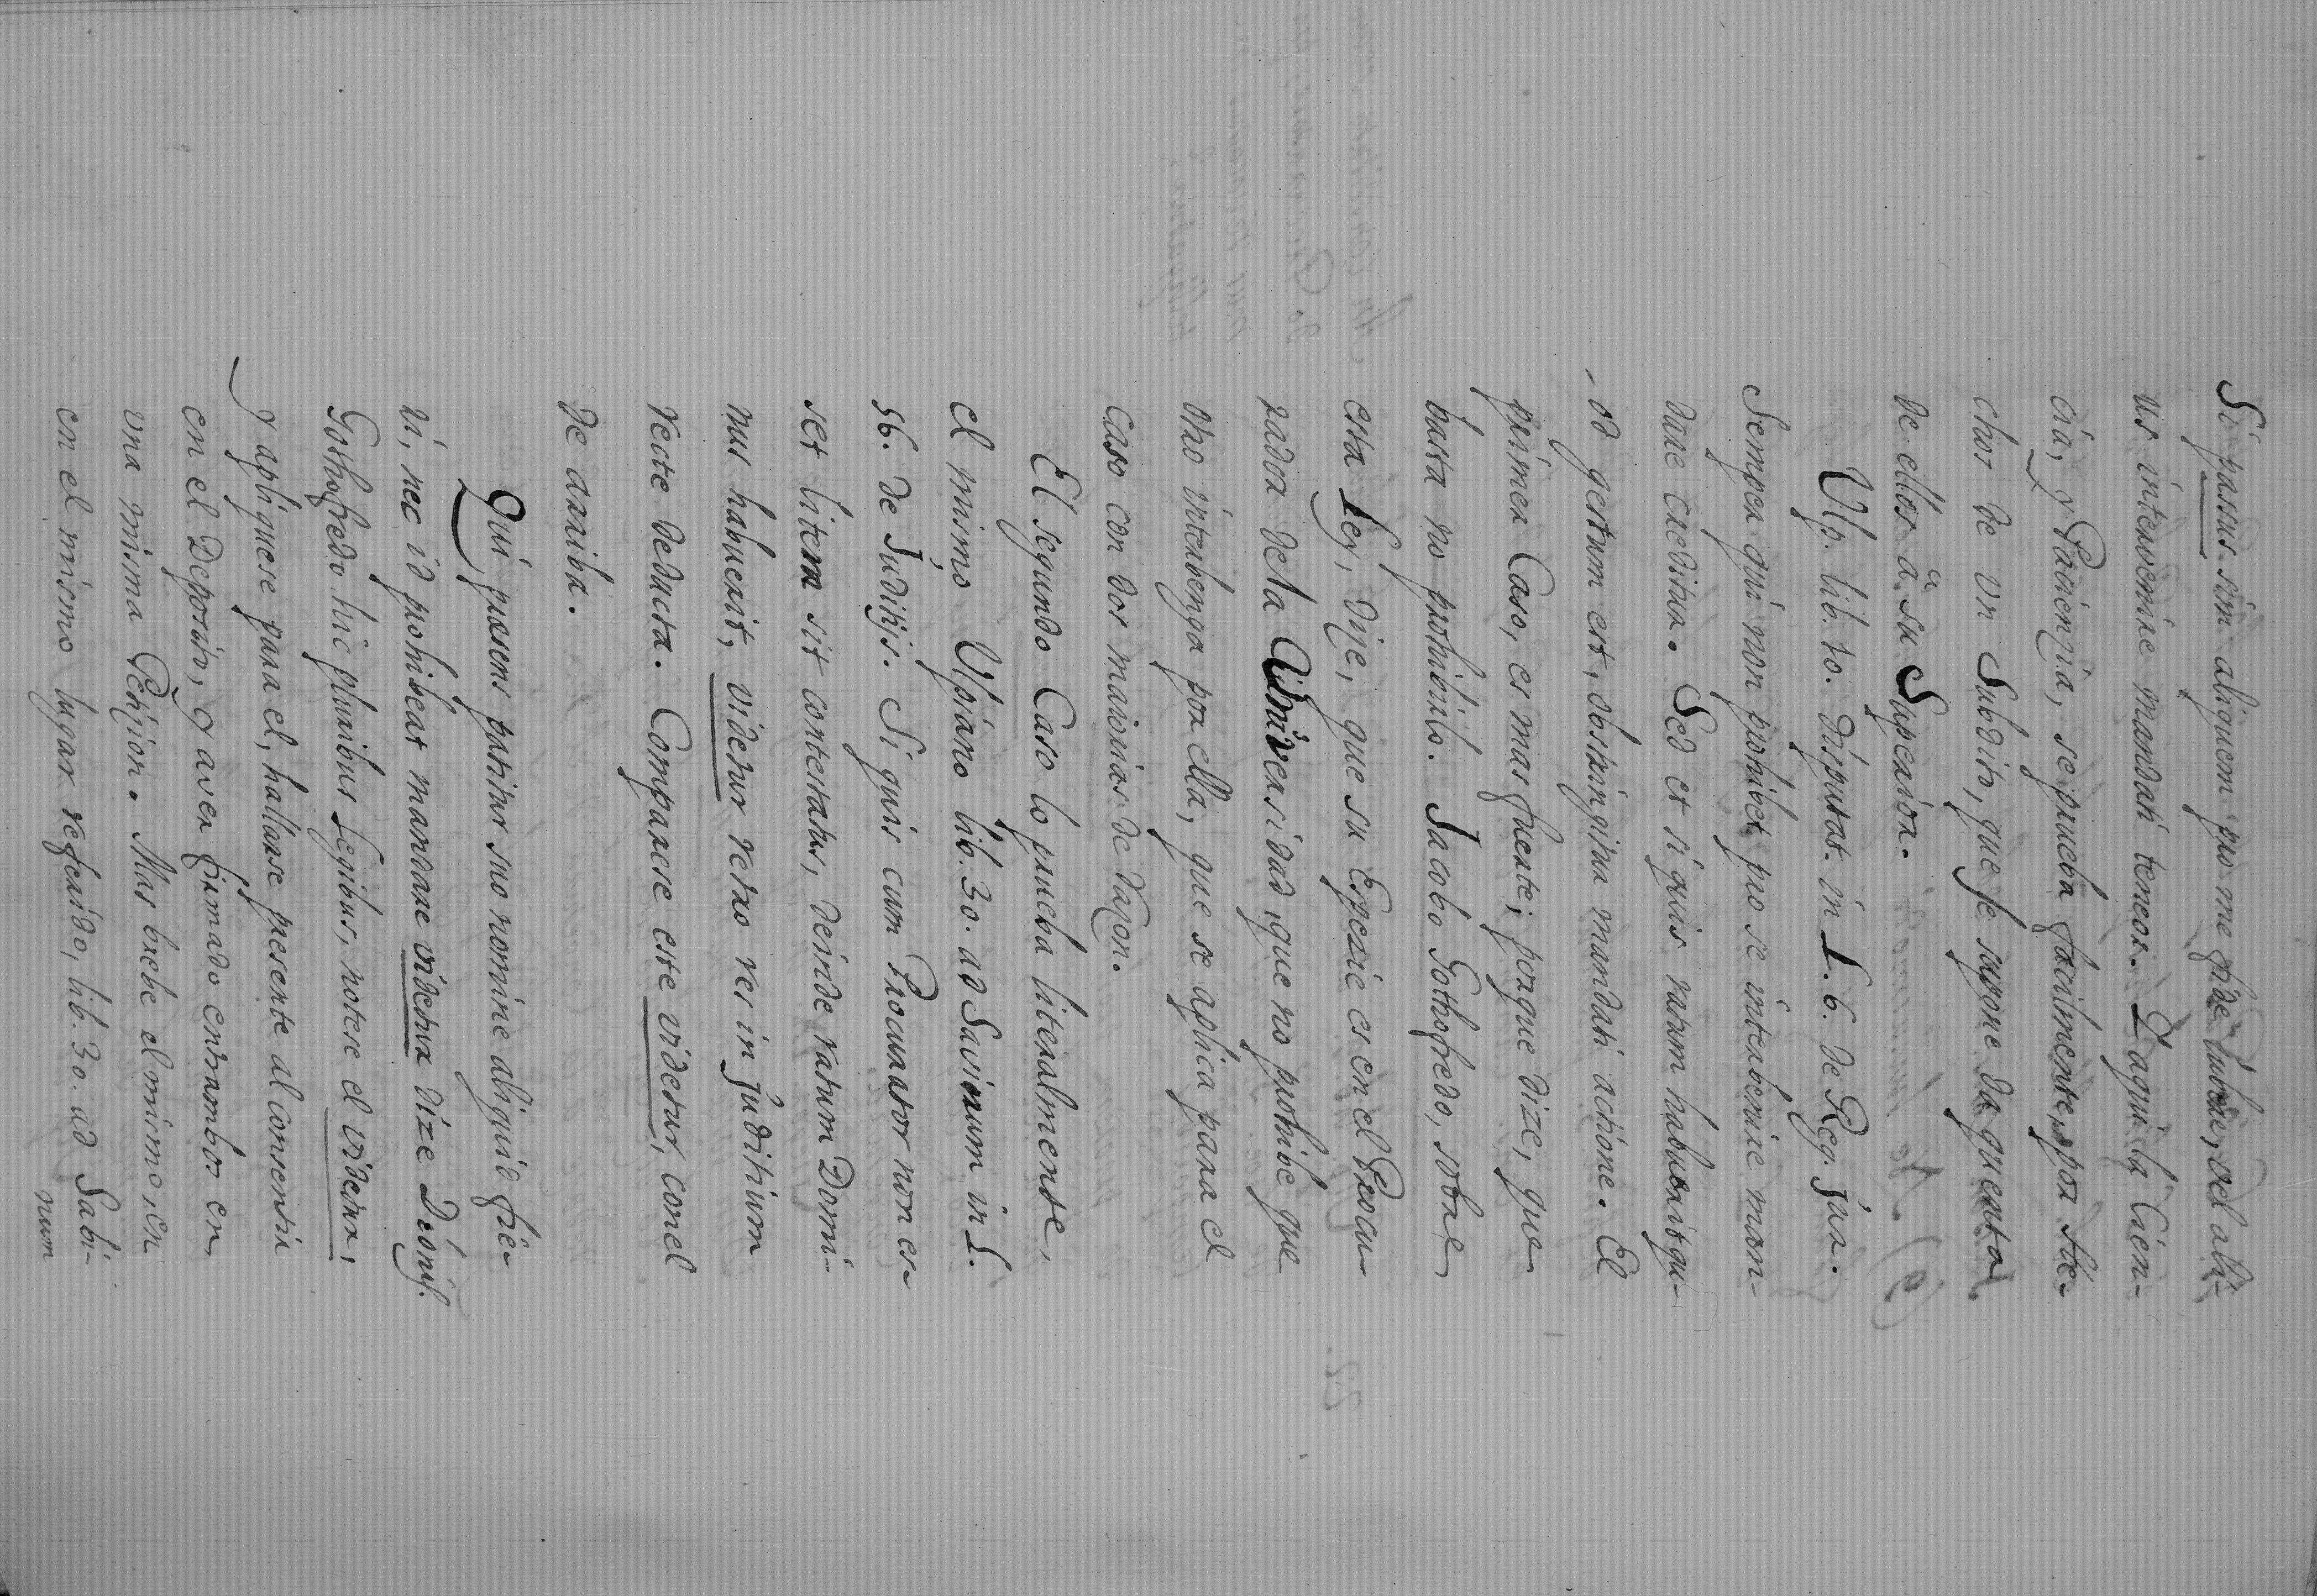 Si passus sim aliquem pro me fide iubere, vel ali-
us intervenire mandati teneor. I aqui la Cien-
cia, y Paciençia, se prueba facilmente, por he-
chos de vn Subdito, que se supone da quenta
de ellos â su Superior.
Vlp. lib. 10. disputat. in L. 6. de Reg. jur.
Semper qui non prohibet pro se interbenire man-
dare creditur. Sed et si quis ratum habuerit qu-
od gestum est, obstringitur mandati actione. El
primer Caso, es mas fuerte; porque dize, que
basta no prohibirlo. Jacobo Gothofredo, sobre
esta Ley, dize, que su Espezie es en el Procu-
rador de la Vniversidad, que no prohibe que
otro interbenga por ella, que se aplica para el
caso con dos maiorias de razon.
El segundo Caso lo prueba literalmente,
el mismo Vlpiano lib. 30. ad Savinum in L.
56. de Juditijs. Si quis cum Procurator non es-
set litem sit contestatus, deinde ratum Domi-
nus habuerit, videtur retro res in juditium
recte deducta. Comparese este videtur, con el
de arriba.
Qui præsens patitur suo nomine aliquid fie-
ri, nec id prohibeat mandare videtur dize Dionij.
Gothofredo hic pluribus Legibus, notese el videtur,
y apliquese para el, hallarse presente al consentir
en el Deposito, y aver firmado entrambos en
vna misma Petizion. Mas brebe el mismo, en
en el mismo lugar referido, lib. 30. ad Sabi-
num